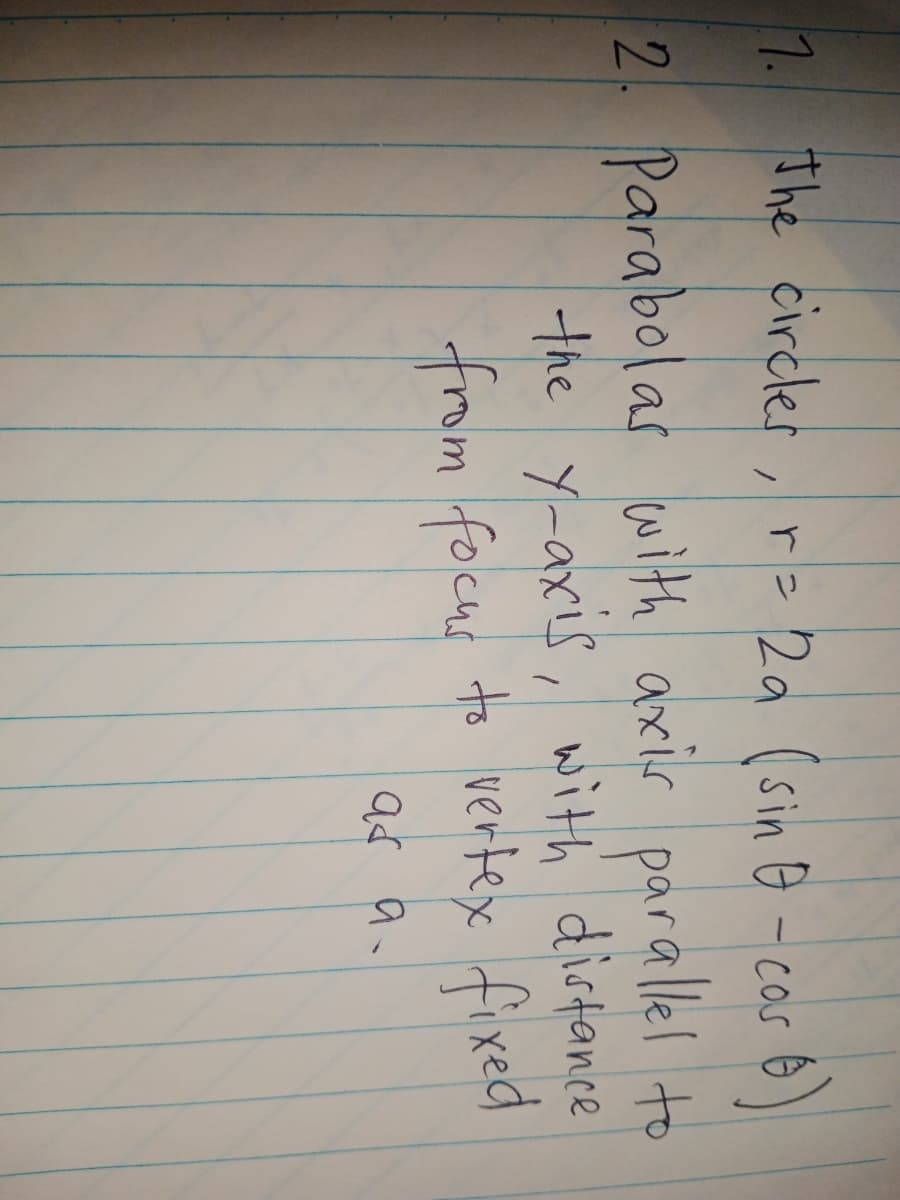 1. The circles, r = 2a (sin θ - cos θ)
2. Parabolas with axis parallel to
the y-axis, with distance
from focus to vertex fixed
as a.